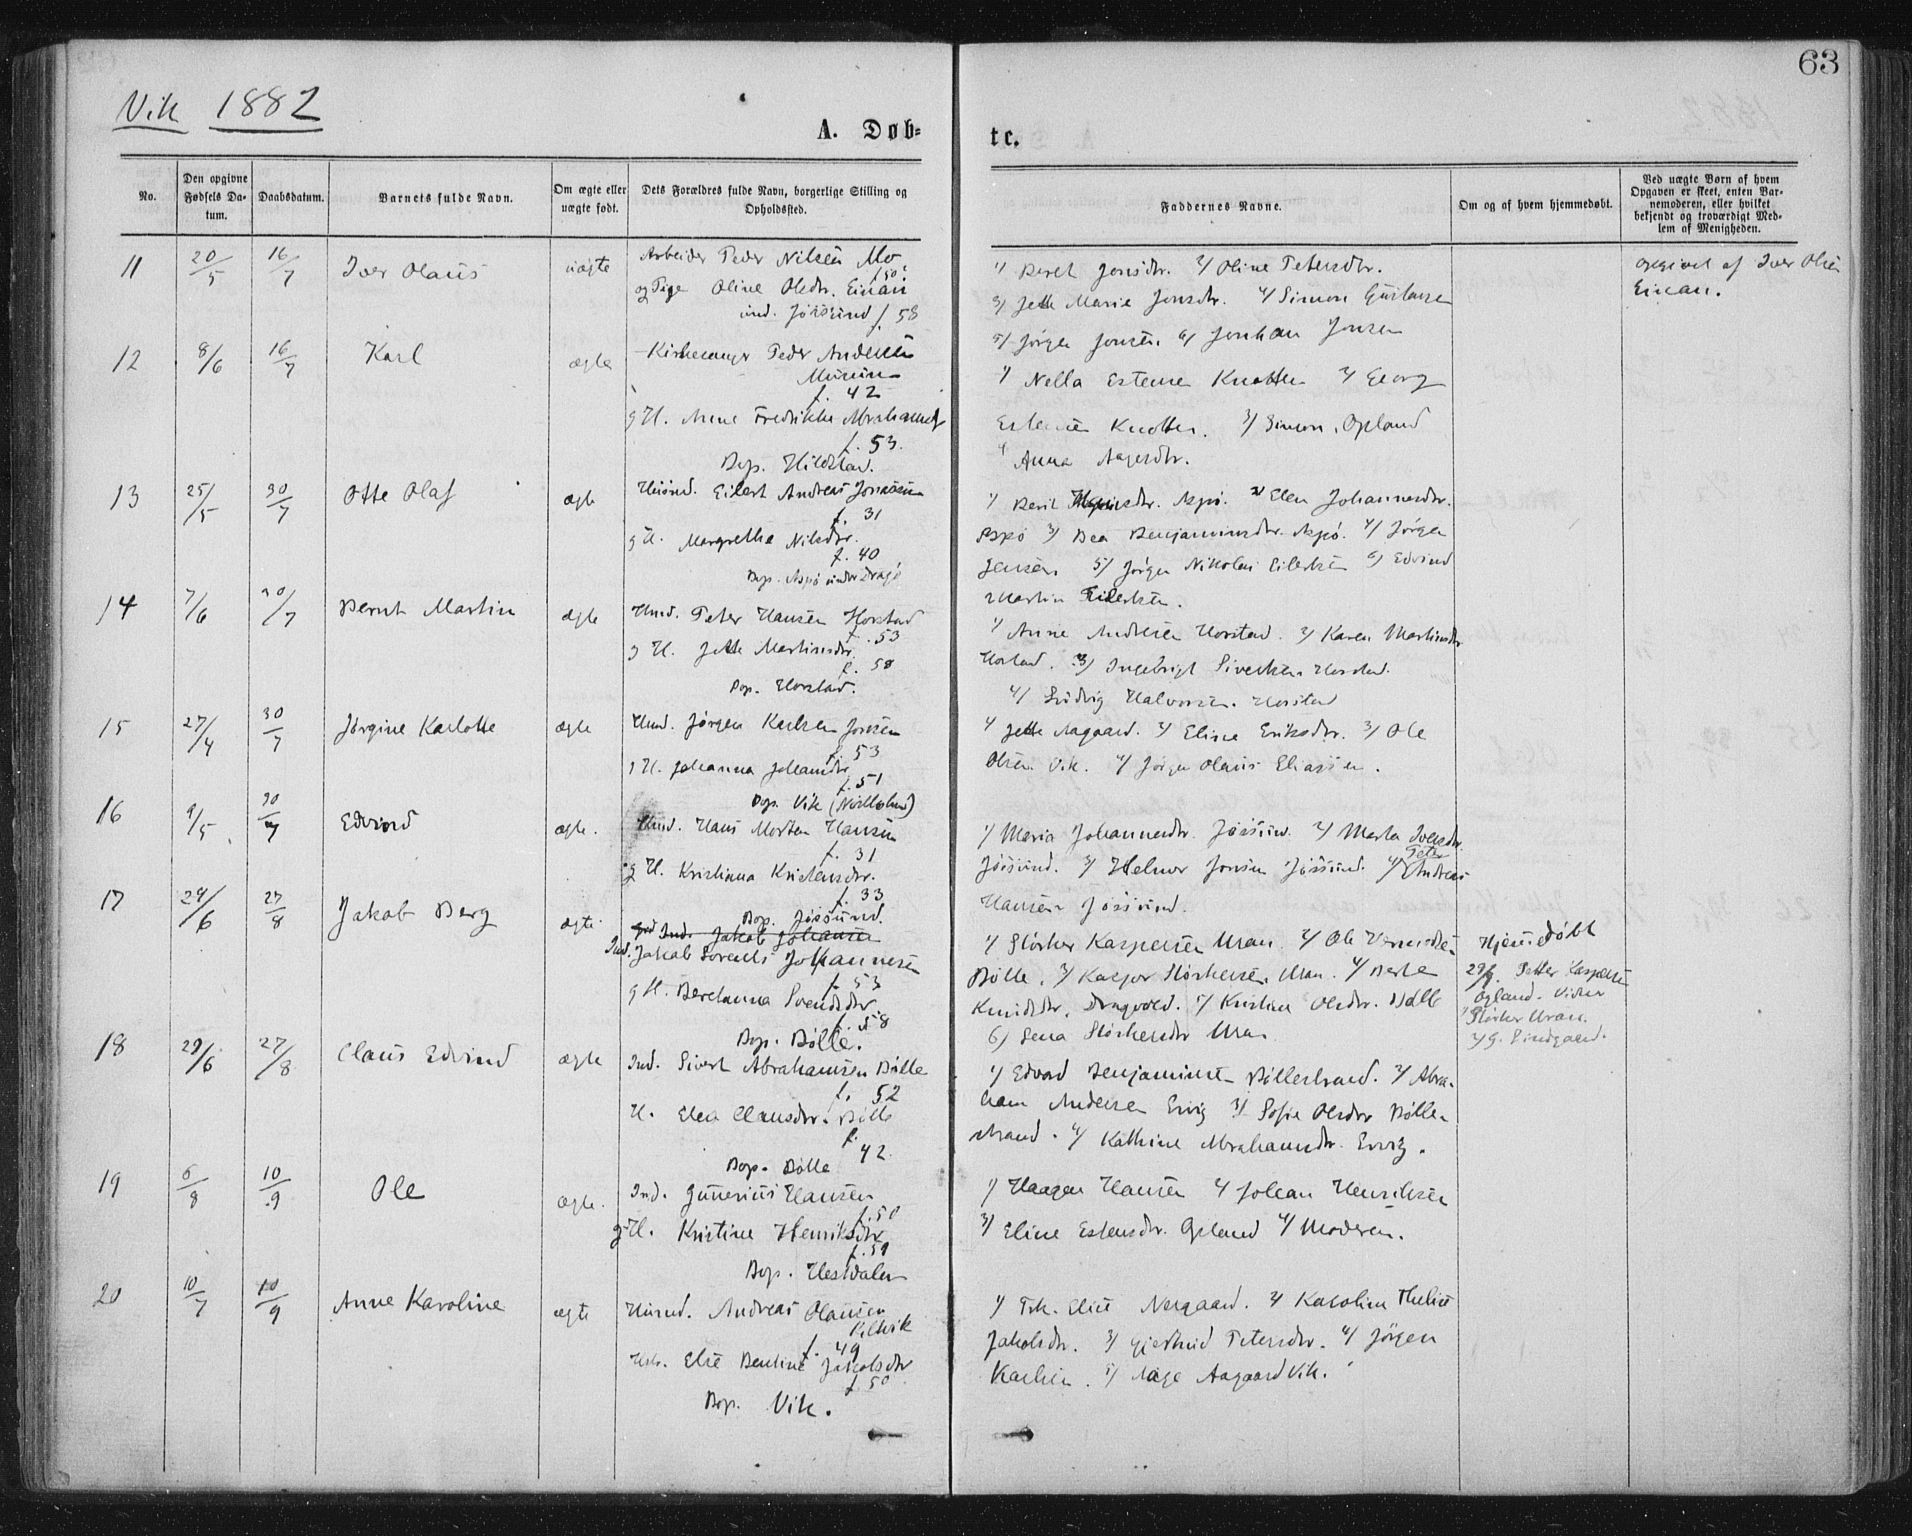 63
Vik 1882
A. Døb=
te.
No.
Den opgivne Fødsels Da-tum.
Daabsdatum.
Barnets fulde Navn.
Om ægte eller uægte født.
Dets Forældres fulde Navn, borgerlige Stilling og Opholdssted.
Faddernes Navne.
Om og af hvem hjemmedøbt.
Ved uægte Børn af hvem Opgaven er skeet, enten Bar-nemoderen, eller hvilket bekjendt og troværdigt Med-lem af Menigheden.
11 20/5 16/7 Iver Olaus uægte
Arbeider Peder Nilsen Mo
f. 50
og Pige Oline Olsdtr. Einan
ind. Jössund f. 58
1/ Beret Jonsdtr. 2/ Oline Petersdtr.
3/ Jette Marie Jonsdtr. 4/ Simon
5/ Jørgen Jonsen. 6/ Jonsen
opgivet af Iver Olsen
Einan.
12 8/6 16/7 Karl ægte
Peder Andersen
f. 42
g H. Anne Fredrikke Abrahamsd
f. 53.
Bop. Hildstad.
1/ Nella Estensen Knotten 2/ Georg
Estensen Knotten. 3/ Simon Opland
4/ Anna Aagesdtr.
13 25/5 30/7 Otte Olaf ægte
Huusmd. Eilert Andreas Jonassen
f. 31
g H. Margrethe Nilsdtr.
f. 40
Bop. Aspø under Dragø
1/ Berit Aspø. 2/ Elen Johannesdtr.
Aspø 3/ Bea Benjaminsdtr. Aspø. 4/ Jørgen
Jensen. 5/ Jørgen Nikolai Eilertsen 6/ Edvind
Martin Eilertsen.
14 7/6 30/7 Bernt Martin ægte
Hmd. Peter Hansen Horstad
f. 53
g H. Jette Martinsdtr.
f. 58
Bop. Horstad.
1/ Anne Andersen Horstad. 2/ Karen Martinsdtr
Horstad. 3/ Ingebrigt Sivertsen Horstad.
4/ Ludvig Halvorsen. Horstad
15 27/4 30/7 Jørgine Karlotte ægte
Hmd. Jørgen Karlsen Jonsen
f. 53
g H. Johanna Johansdtr
f. 51
Bop. Vik (Nordholmd)
1/ Jette Aagaard. 2/ Eline Eriksdtr. 3/ Ole
Olsen Vik. 4/ Jørgen Olaus Eliassen.
16 9/5 30/7 Edvind ægte.
Hmd. Hans Morten Hansen
f. 31
g H. Kristiana Kristensdtr.
f. 33
Bop. Jössund.
1/ Maria Johannesdtr. Jössund. 2/ Marta Iversdtr.
Jössund. 3/ Helmer Jonsen Jössund. 4/ Peter Andreas
Hansen Jössund.
17 24/6 27/8 Jakob Berg ægte
Ind. Jakob Johansen
Ind. Jakob Lorents Johannesen
f. 53
g H. Beretanna Svendsdtr
f. 58
Bop. Bölle.
1/ Störker Kaspersen Uran. 2/ Ole
Bölle. 3/ Kasper Störkersen Uran. 4/ Berte
Knudsdtr. Dragvold. 5/ Kristine Olsdtr. Bölle
6/ Lena Störkersdtr Uran
Hjemmedøbt
29/6. Petter Kaspersen
Opland. Vidner
1/ Störker Uran.
2/ G. Lindgaard.
18 29/6 27/8 Claus Edvind ægte
Ind. Sivert Abrahamsen Bölle
f. 52
H. Elea Clausdtr. Bölle
f. 42
Bop. Bölle
1/ Edvard Benjaminsen Böllestrand. 2/ Abra-
ham Andersen Ervig 3/ Sofie Olsdtr Bölle-
strand. 4/ Kathrine Abrahamsdtr Ervig.
19 6/8 10/9 Ole ægte.
Ind. Gunerius Hansen
f. 50
g H. Kristine Henriksdtr
f. 59
Bop. Hestdalen
1/ Haagen Hansen 2/ Johan Henriksen
3/ Eline Estensdtr. Opland 4/ Moderen.
20 10/7 10/9 Anne Karoline ægte
Husmd. Andreas Olaussen
f. 49
Hstr. Elise Bentine Jakobsdtr
f. 50
Bop. Vik.
1/ Frk. Elise Norgaard. 2/ Karoline Theline
Jakobsdtr. 3/ Gjertrud Petersdtr. 4/ Jörgen
Karlsen. 5/ Aage Aagaard Vik.